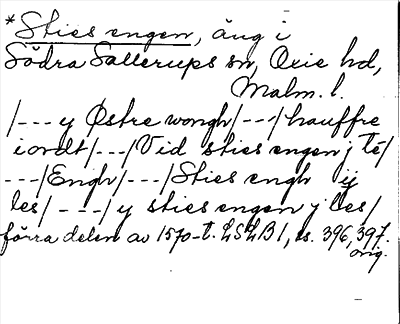 *Sties engen, äng i
Södra Sallerups sn, Oxie hd,
Malm. l.
/--- y Østre wongh/---/hauffre
iordt/---/Vid sties engen j té/
---/Engh/---/Sties engh ij
les/---/y sties engen j les/
förra delen av 1570-t. LSLB 1, s. 396, 397.
orig.